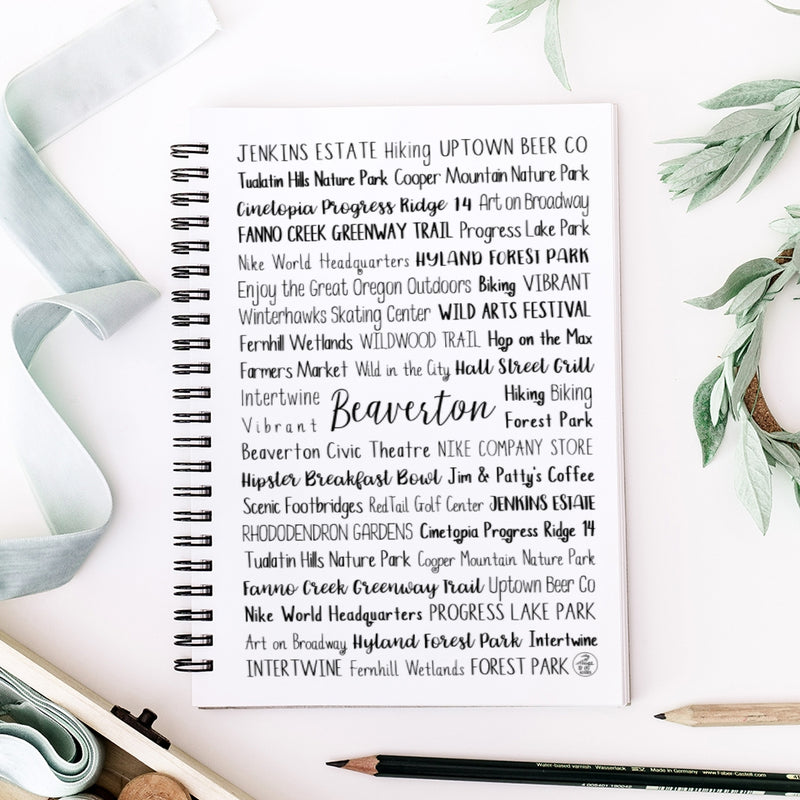 JENKINS ESTATE Hiking UPTOWN BEER CO
Tualatin Hills Nature Park Cooper Mountain Nature Park
Cinetopia Progress Ridge 14 Art on Broadway
FANNO CREEK GREENWAY TRAIL Progress Lake Park
Nike World Headquarters HYLAND FOREST PARK
Enjoy the Great Oregon Outdoors Biking VIBRANT
Winterhawks Skating Center WILD ARTS FESTIVAL
Fernhill Wetlands WILDWOOD TRAIL Hop on the Max
Farmers Market Wild in the City Hall Street Grill
Intertwine Hiking Biking
Beaverton
Vibrant Forest Park
Beaverton Civic Theatre NIKE COMPANY STORE
Hipster Breakfast Bowl Jim & Patty's Coffee
Scenic Footbridges RedTail Golf Center JENKINS ESTATE
RHODODENDRON GARDENS Cinetopia Progress Ridge 14
Tualatin Hills Nature Park Cooper Mountain Nature Park
Fanno Creek Greenway Trail Uptown Beer Co
Nike World Headquarters PROGRESS LAKE PARK
Art on Broadway Hyland Forest Park Intertwine
INTERTWINE Fernhill Wetlands FOREST PARK
Water-based varnish Wasserlack Made in Germany www.Faber-Castell.com